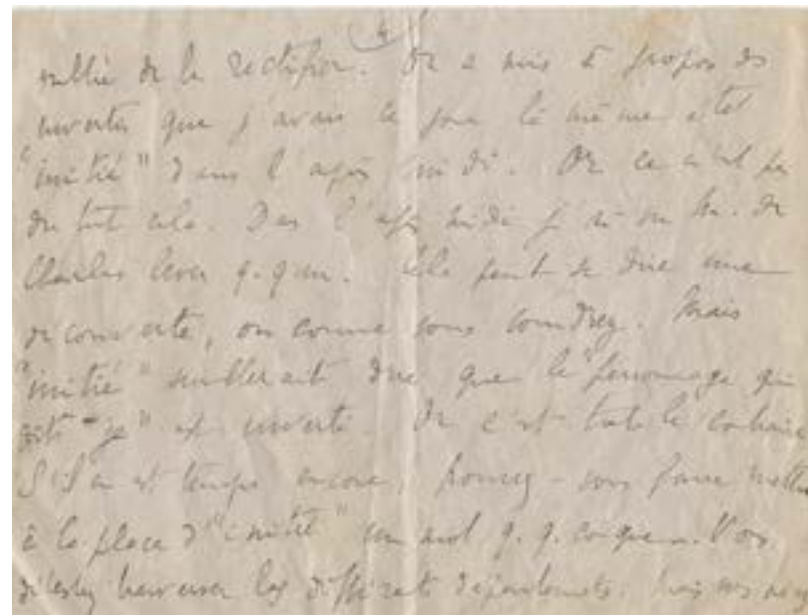 oublié de la rectifier. On a mis à propos des
invertis que j'avais ce jour là même été
"initié" dans l'après midi. Or ce n'est pas
du tout cela. Dans l'après midi j'ai vu M. de
Charlus lever q.q'un. Cela peut se dire une
découverte, ou comme vous voudrez. Mais
"initié" semblerait dire que le personnage qui
dit "je" est inverti. Or c'est tout le contraire
S'il en est temps encore, pourrez-vous faire mettre
à la place d'"initié" un mot q.q. conque. Vous
les différents départements. Mais